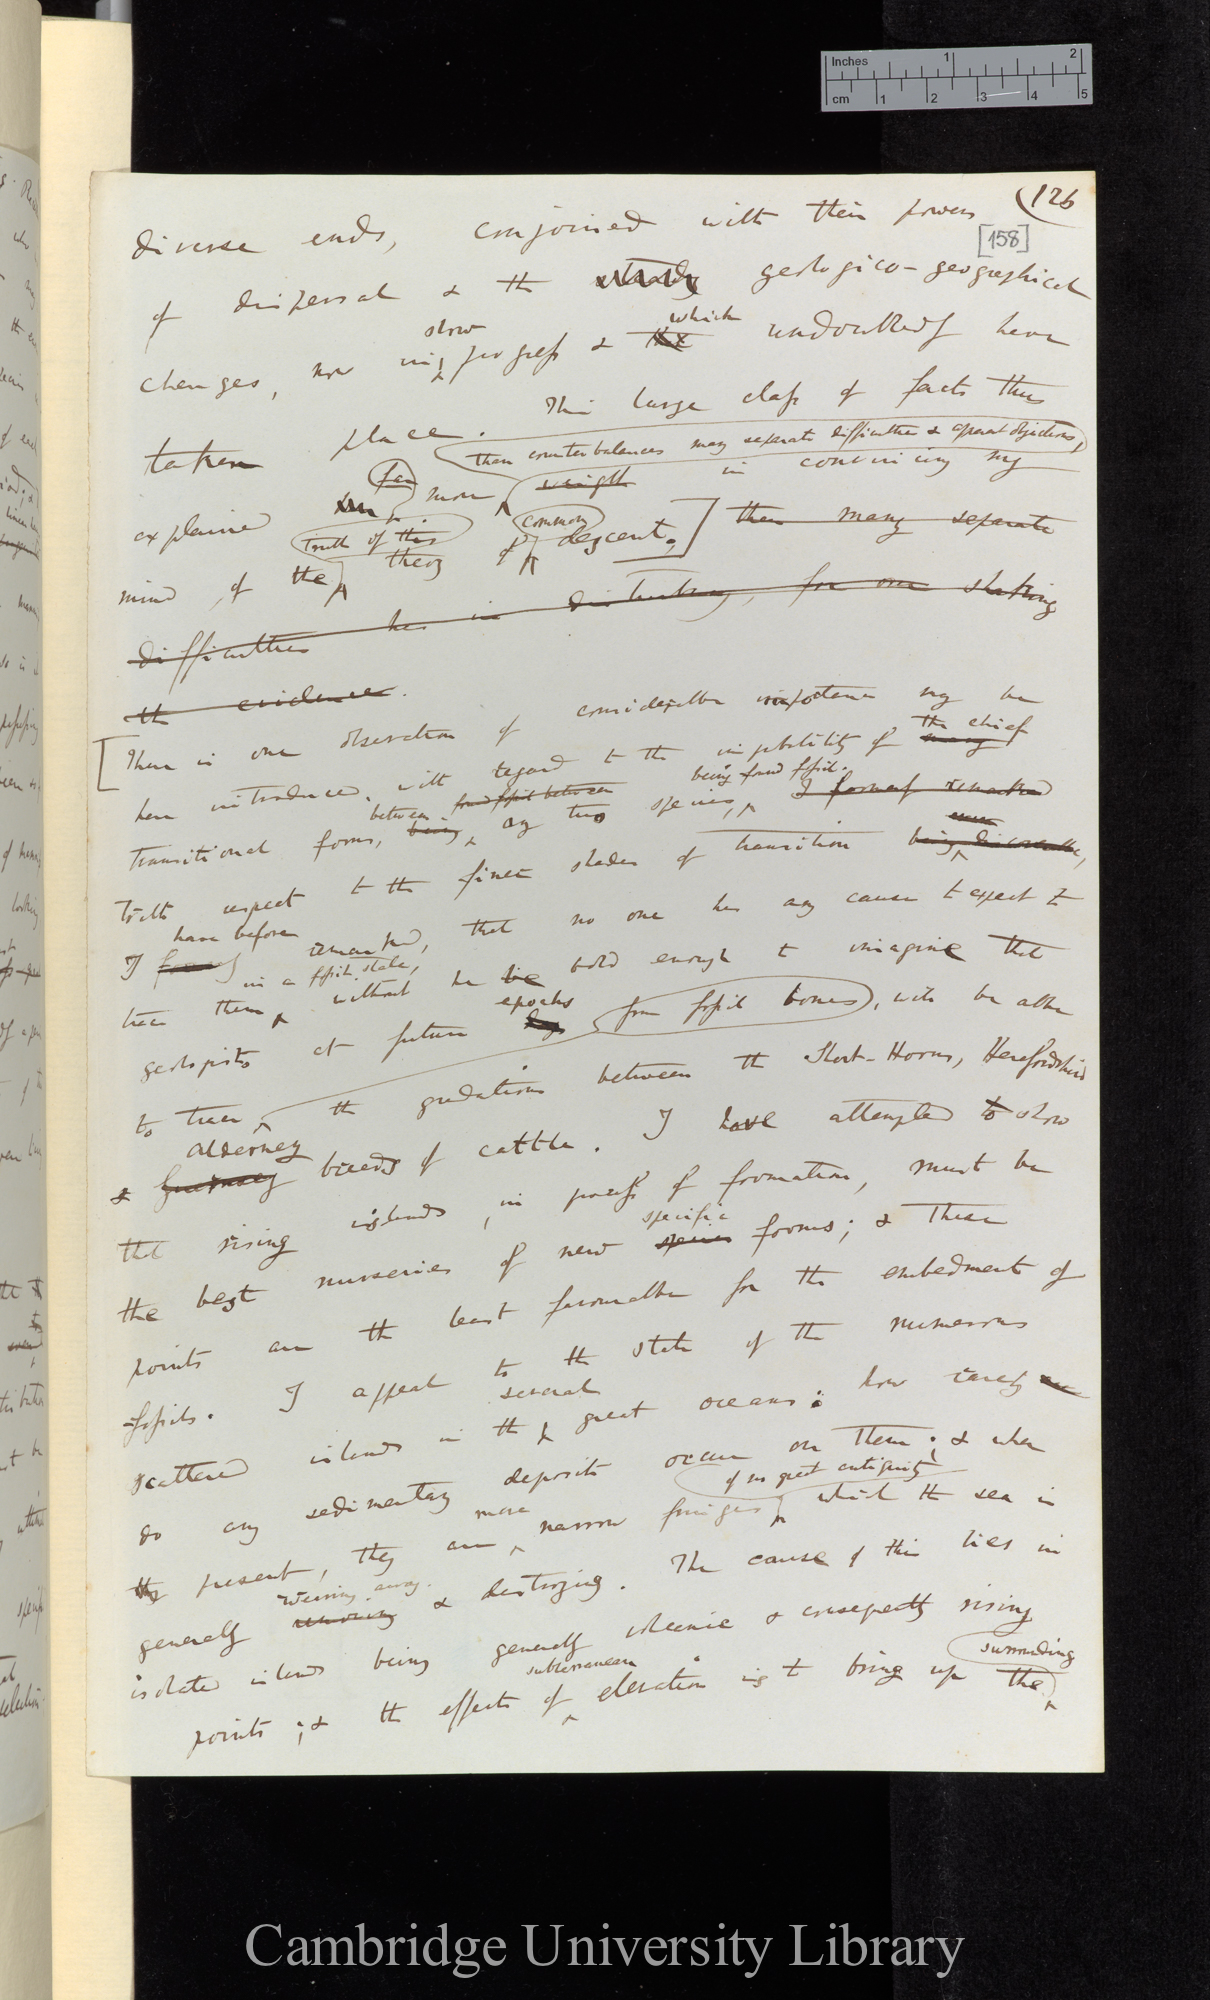 126
[158]
diverse ends, conjoined with their powers
of dispersal & the geologico-geographical
slow which
changes, now in progress & the undoubtedly have
taken place. This large class of facts thus
than counterbalances many separate difficulties & apparent objections,
explained far more weight in convincing my
truth of this common
mind, of the theory of descent.] than many separate
difficulties has in disturbing, for one shaking
the evidence.
[There is one observation of considerable importance may be
here introduced, with regard to the improbability of many the chief
between found fossil between being found fossil.
transitional forms, being any two species, I formerly remarked
With respect to the finer shades of transition being discoverable,
have before
I formerly remarked, that no one has any cause to expect to
in a fossil state,
trace them without he be bold enough to imagine that
epochs
geologists at future from fossil bones, will be able
to trace the gradations between the Short-Horns, Herefordshire
Alderney
& Guernsey breeds of cattle. I have attempted to show
that rising islands, in process of formation, must be
specific
the best nurseries of new species forms; & these
points are the least favourable for the embedment of
fossils. I appeal to the state of the numerous
several
scattered islands in the great oceans: how rarely
do any sedimentary deposits occur on them; & when
more of no great antiquity
present, they are narrow fringes which the sea is
wearing away.
generally removing & destroying. The cause of this lies in
isolated islands being generally volcanic & consequently rising
subterranean surrounding
points; & the effects of elevation is to bring up the
Inches 1 2
cm 1 2 3 4 5
Cambridge University Library